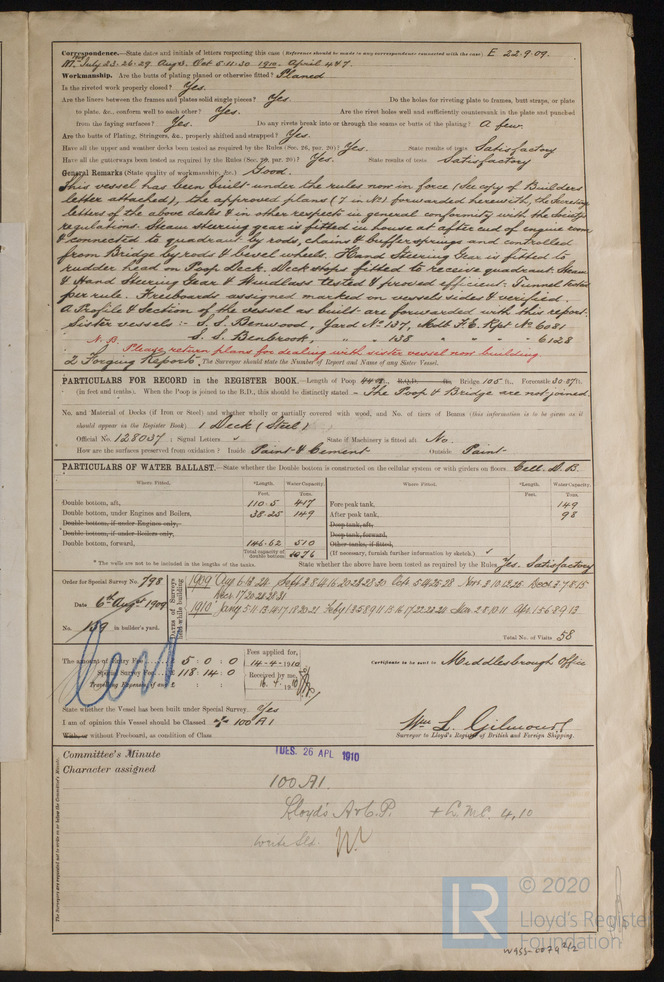 Correspondence.—State dates and initials of letters respecting this case (Reference should be made to any correspondence connected with the case) E 22.9.09.
July 23. 26. 29. Aug 3. Oct 5. 11. 30. 1910. April 4 & 7.
Workmanship. Are the butts of plating planed or otherwise fitted? Planed
Is the riveted work properly closed? Yes.
Are the liners between the frames and plates solid single pieces? Yes. Do the holes for riveting plate to frames, butt straps, or plate
to plate, &c., conform well to each other? Yes. Are the rivet holes well and sufficiently countersunk in the plate and punched
from the faying surfaces? Yes. Do any rivets break into or through the seams or butts of the plating? A few.
Are the butts of Plating, Stringers, &c., properly shifted and strapped? Yes.
Have all the upper and weather decks been tested as required by the Rules (Sec. 26, par. 20)? Yes. State results of tests Satisfactory
Have all the gutterways been tested as required by the Rules (Sec. 26, par. 20)? Yes. State results of tests Satisfactory
General Remarks (State quality of workmanship, &c.) Good.
This vessel has been built under the rules now in force (See copy of Builders
letter attached), the approved plans (7 in No) forwarded herewith, the Secretary's
letters of the above dates & in other respects in general conformity with the Society's
regulations. Steam steering gear is fitted in house at after end of engine room
& connected to quadrant by rods, chains & buffer springs and controlled
from Bridge by rods & bevel wheels. Hand Steering Gear is fitted to
rudder head on Poop Deck. Deck stops fitted to receive quadrant. Steam
& Hand Steering Gear & Windlass tested & proved efficient. Tunnel tested
per rule. Freeboards assigned marked on vessels sides & verified.
A Profile & Section of the vessel as built are forwarded with this report.
Sister vessels :- S.S. Benwood, Yard No 137, Rpt No 6081
S.S. Benbrook, " " 138 " " " 6128
N.B. Please return plans for dealing with sister vessel now building.
2 Forging Reports. The Surveyor should state the Number of Report and Name of any Sister Vessel.
PARTICULARS FOR RECORD in the REGISTER BOOK.—Length of Poop ft., R.Q.D. ft., Bridge 105 ft., Forecastle 30.87 ft.
(in feet and tenths). When the Poop is joined to the B.D., this should be distinctly stated - The Poop & Bridge are not joined.
No. and Material of Decks (if Iron or Steel) and whether wholly or partially covered with wood, and No. of tiers of Beams (this information is to be given as it
should appear in the Register Book) 1 Deck (Steel)
Official No. 128037 ; Signal Letters State if Machinery is fitted aft No.
How are the surfaces preserved from oxidation? Inside Paint & Cement Outside Paint
PARTICULARS OF WATER BALLAST.—State whether the Double bottom is constructed on the cellular system or with girders on floors Cell. D.B.
Where Fitted. *Length. Water Capacity. Where Fitted. *Length. Water Capacity.
Feet. Tons. Feet. Tons.
Double bottom, aft, 110.5 417 Fore peak tank, 149
Double bottom, under Engines and Boilers, 38.25 149 After peak tank, 98
Double bottom, if under Engines only, Deep tank, aft,
Double bottom, if under Boilers only, Deep tank, forward,
Double bottom, forward, 146.62 510 Other tanks, if fitted,
Total capacity of double bottom 1076 (If necessary, furnish further information by sketch.)
* The wells are not to be included in the lengths of the tanks. State whether the above have been tested as required by the Rules Yes. Satisfactory
Order for Special Survey No. 798
Date 6th Augst 1909
No. 139 in builder's yard.
Dates of Surveys held while building
1909 Aug. 6. 18. 24. Sept. 3. 8. 14. 16. 20. 23. 28. 30 Oct. 5. 14. 25. 28. Nov. 3. 10. 12. 25. Decr. 3. 7. 8. 15
Decr. 17. 20. 23. 28. 31
1910 Jany 5. 11. 13. 14. 17. 18. 20. 21 Feby 1. 3. 5. 8. 9. 11. 13. 16. 17. 22. 23. 24 Mar. 2. 8. 10. 11 Apr. 1. 5. 6. 8. 9. 13
Total No. of Visits 58
The amount of Entry Fee £ 5 : 0 : 0
Special Survey Fee £ 118 : 14 : 0
Travelling Expenses, if any £
Fees applied for, 14-4-1910
Received by me, 16.4.1910
Certificate to be sent to Middlesbrough Office
State whether the Vessel has been built under Special Survey Yes
I am of opinion this Vessel should be Classed 100A1
With, or without Freeboard, as condition of Class
Wm L. Gilmour
Surveyor to Lloyd's Register of British and Foreign Shipping.
Committee's Minute TUES. 26 APL 1910
Character assigned
100A1.
Lloyd's A & C.P. + L.M.C. 4,10
The Surveyors are requested not to write on or below the Committee's Minute.
© 2020
LR
Lloyd's Register
Foundation
W955-0079 2/2